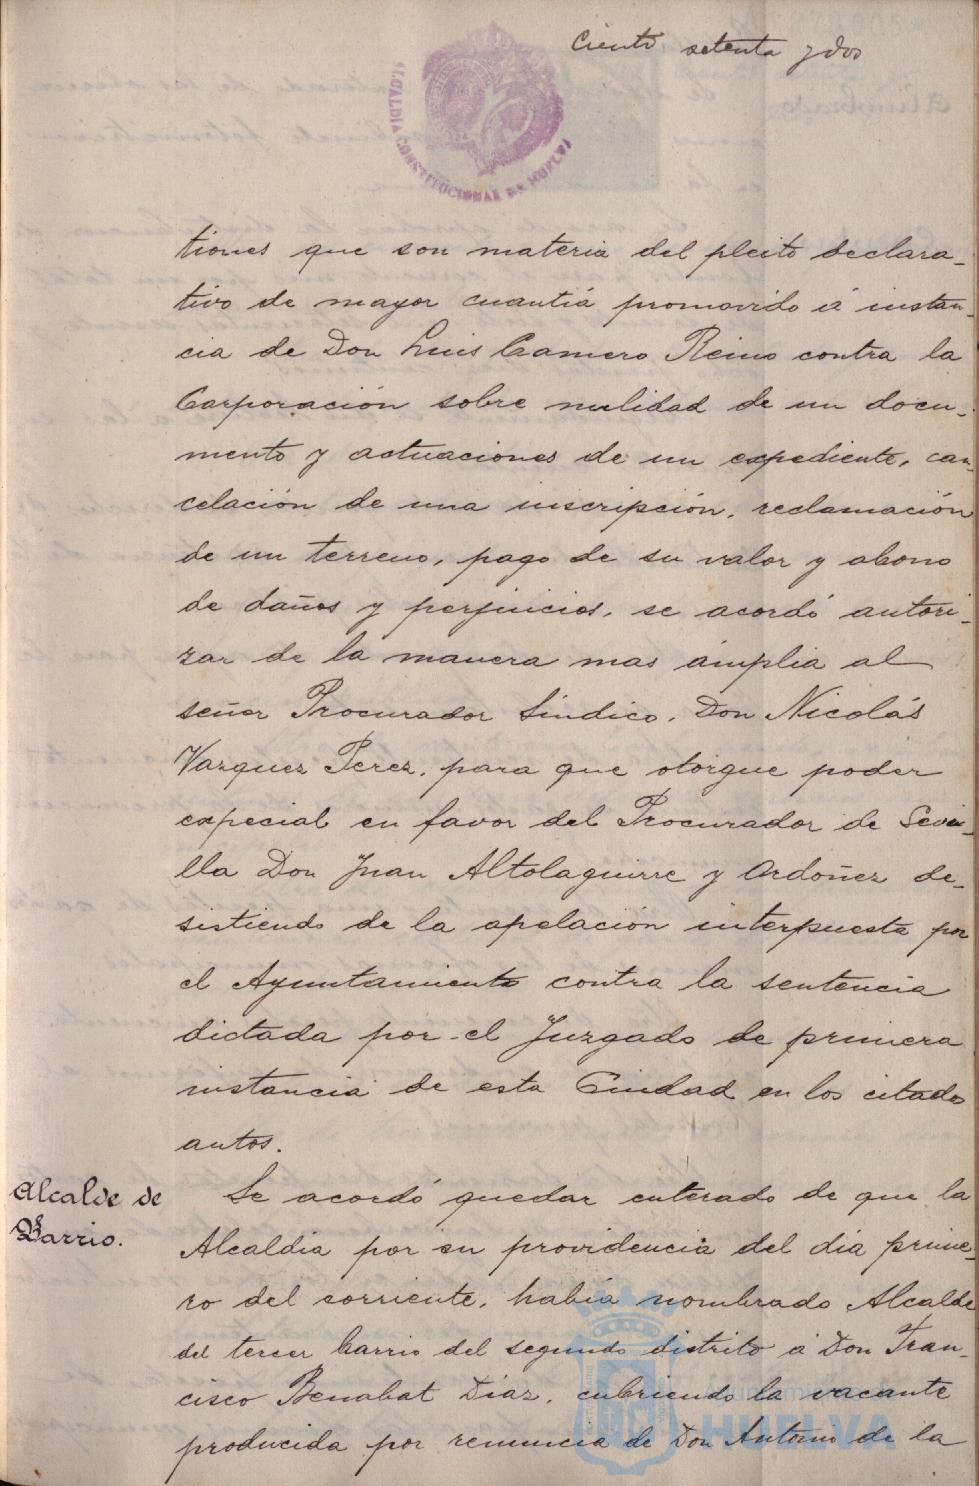 Ciento setenta y dos
ALCALDIA CONSTITUCIONAL DE HUELVA
tiones que son materia del pleito declara-
tivo de mayor cuantiá promovido á instan-
cia de Don Luis Camero Reino contra la
Corporación sobre nulidad de un docu-
mento y actuaciones de un expediente, can-
celación de una inscripción, reclamación
de un terreno, pago de su valor y abono
de daños y perjuicios, se acordó autori-
zar de la manera mas ámplia al
señor Procurador Síndico, Don Nicolás
Vazquez Perez, para que otorgue poder
especial en favor del Procurador de Sevi-
lla Don Juan Altolaguirre y Ordoñez de-
sistiendo de la apelación interpuesta por
el Ayuntamiento contra la sentencia
dictada por el Juzgado de primera
instancia de esta Ciudad en los citados
autos.
Alcalde de
Barrio.
Se acordó quedar enterado de que la
Alcaldia por su providencia del dia prime-
ro del corriente, habia nombrado Alcalde
del tercer barrio del segundo distrito á Don Fran-
cisco Benabat Diaz, cubriendo la vacante
producida por renuncia de Don Antonio de la
Ayuntamiento de
HUELVA